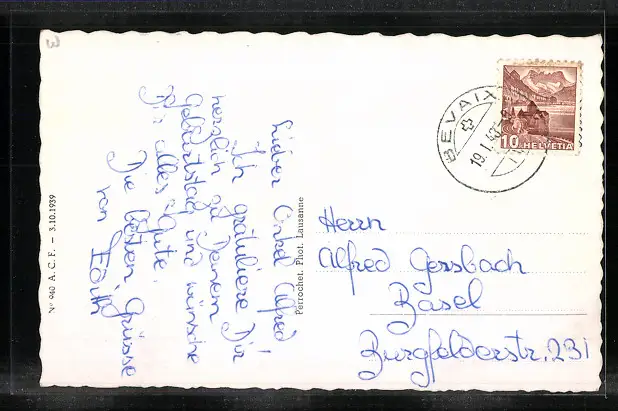 3
Lieber Onkel Alfred!
Ich gratuliere Dir
herzlich zu Deinem
Geburtstag und wünsche
Dir alles Gute.
Die besten Grüsse
von Edith
Nº 940 A. C. F. — 3.10.1939
Perrochet. Phot. Lausanne
BEVAIX
19.I.43
10 HELVETIA
Herrn
Alfred Gersbach
Basel
Burgfelderstr. 231